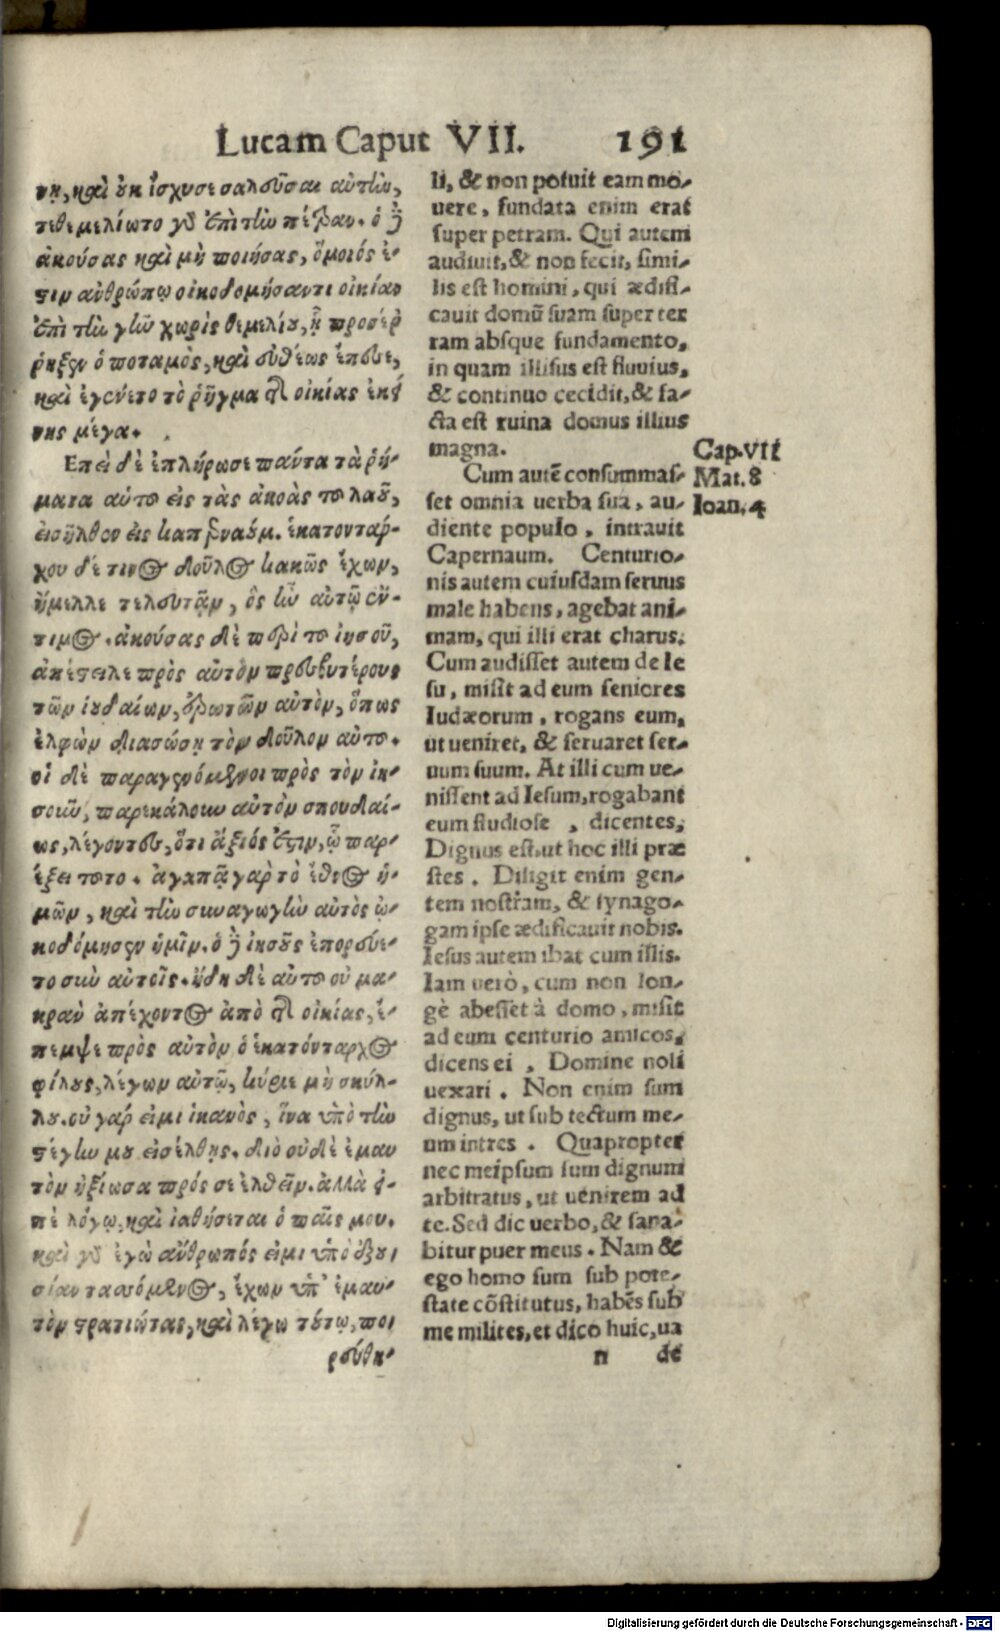 Lucam Caput VII. 191
νῃ, καὶ οὐκ ἴσχυσε σαλεῦσαι αὐτὴν,
τεθεμελίωτο γὰρ ἐπὶ τὴν πέτραν. ὁ δὲ
ἀκούσας καὶ μὴ ποιήσας, ὅμοιός ἐ-
στιν ἀνθρώπῳ οἰκοδομήσαντι οἰκίαν
ἐπὶ τὴν γῆν χωρὶς θεμελίου, ᾗ προσέρ
ρηξεν ὁ ποταμὸς, καὶ εὐθέως ἔπεσε,
καὶ ἐγένετο τὸ ῥῆγμα τῆς οἰκίας ἐκεί
νης μέγα.
Επεὶ δὲ ἐπλήρωσε πάντα τὰ ῥή-
ματα αὐτοῦ εἰς τὰς ἀκοὰς τοῦ λαοῦ,
εἰσῆλθεν εἰς καπερναούμ. ἑκατοντάρ-
χου δέ τινος δοῦλος κακῶς ἔχων,
ἤμελλε τελευτᾷν, ὃς ἦν αὐτῷ ἔν-
τιμος. ἀκούσας δὲ περὶ τοῦ ἰησοῦ,
ἀπέστειλε πρὸς αὐτὸν πρεσβυτέρους
τῶν ἰουδαίων, ἐρωτῶν αὐτὸν, ὅπως
ἐλθὼν διασώσῃ τὸν δοῦλον αὐτοῦ.
οἱ δὲ παραγενόμενοι πρὸς τὸν ἰη-
σοῦν, παρεκάλουν αὐτὸν σπουδαί-
ως, λέγοντες, ὅτι ἄξιός ἐστιν, ᾧ παρ-
έξει τοῦτο. ἀγαπᾷ γὰρ τὸ ἔθνος ἡ-
μῶν, καὶ τὴν συναγωγὴν αὐτὸς ᾠ-
κοδόμησεν ἡμῖν. ὁ δὲ ἰησοῦς ἐπορεύε-
το σὺν αὐτοῖς. ἤδη δὲ αὐτοῦ οὐ μα-
κρὰν ἀπέχοντος ἀπὸ τῆς οἰκίας, ἔ-
πεμψε πρὸς αὐτὸν ὁ ἑκατόνταρχος
φίλους, λέγων αὐτῷ, κύριε μὴ σκύλ-
λου. οὐ γάρ εἰμι ἱκανὸς, ἵνα ὑπὸ τὴν
στέγην μου εἰσέλθῃς. διὸ οὐδὲ ἐμαυ
τὸν ἠξίωσα πρός σε ἐλθεῖν. ἀλλὰ εἰ-
πὲ λόγῳ, καὶ ἰαθήσεται ὁ παῖς μου.
καὶ γὰρ ἐγὼ ἄνθρωπός εἰμι ὑπὸ ἐξου
σίαν τασσόμενος, ἔχων ὑπ' ἐμαυ-
τὸν στρατιώτας, καὶ λέγω τούτῳ, πο
ρεύθη-
li, & non potuit eam mo-
uere, fundata enim erat
super petram. Qui autem
audiuit, & non fecit, simi-
lis est homini, qui ædifi-
cauit domũ suam super ter
ram absque fundamento,
in quam illisus est fluuius,
& continuo cecidit, & fa-
cta est ruina domus illius
magna.
Cum autē consummas-
set omnia uerba sua, au-
diente populo, intrauit
Capernaum. Centurio-
nis autem cuiusdam seruus
male habens, agebat ani-
mam, qui illi erat charus.
Cum audisset autem de Ie
su, misit ad eum seniores
Iudæorum, rogans eum,
ut ueniret, & seruaret ser-
uum suum. At illi cum ue-
nissent ad Iesum, rogabant
eum studiose, dicentes,
Dignus est, ut hoc illi præ
stes. Diligit enim gen-
tem nostram, & synago-
gam ipse ædificauit nobis.
Iesus autem ibat cum illis.
Iam uerò, cum non lon-
gè abesset à domo, misit
ad eum centurio amicos,
dicens ei, Domine noli
uexari. Non enim sum
dignus, ut sub tectum me-
um intres. Quapropter
nec meipsum sum dignum
arbitratus, ut uenirem ad
te. Sed dic uerbo, & sana-
bitur puer meus. Nam &
ego homo sum sub pote-
state cõstitutus, habēs sub
me milites, et dico huic, ua
n de
Cap. VII
Mat. 8
Ioan. 4
Digitalisierung gefördert durch die Deutsche Forschungsgemeinschaft - DFG